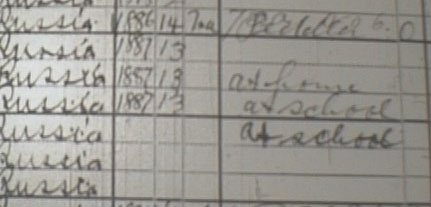 Russia 1886 14
Russia 1887 13
Russia 1887 13 at home
Russia 1887 13 at school
Russia at school
Russia
Russia